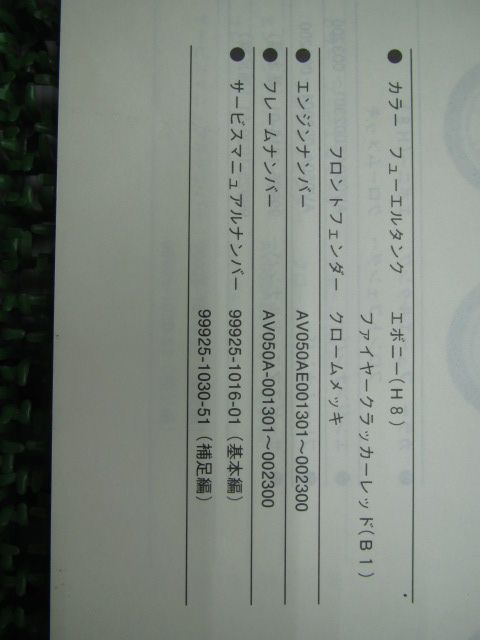 ● カラー フューエルタンク エボニー(H8)
ファイヤークラッカーレッド(B1)
フロントフェンダー クロームメッキ
● エンジンナンバー AV050AE001301～002300
● フレームナンバー AV050A-001301～002300
● サービスマニュアルナンバー 99925-1016-01 (基本編)
99925-1030-51 (補足編)